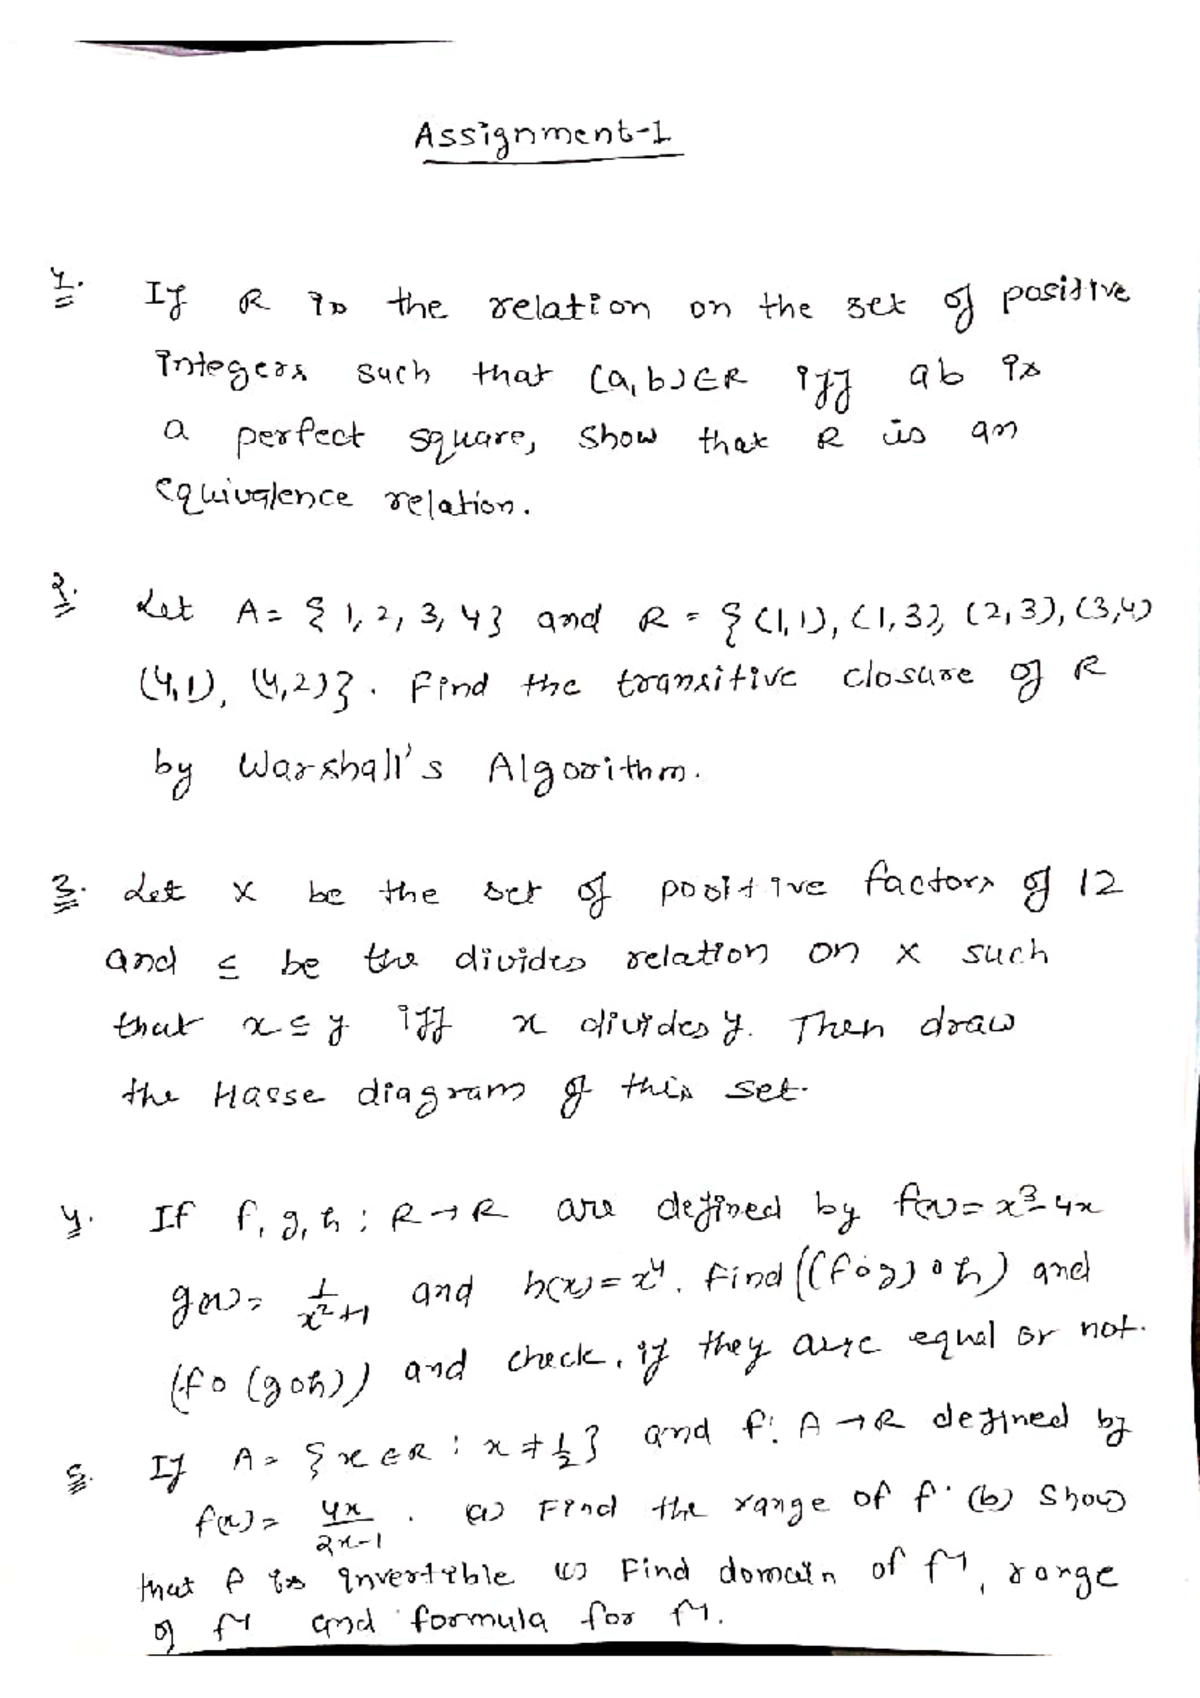 Assignment-1
1. If R is the relation on the set of positive
integers such that (a,b)∈R iff ab is
a perfect square, show that R is an
equivalence relation.
2. Let A = {1, 2, 3, 4} and R = {(1,1), (1,3), (2,3), (3,4)
(4,1), (4,2)}. Find the transitive closure of R
by Warshall's Algorithm.
3. Let X be the set of positive factors of 12
and ≤ be the divides relation on X such
that x ≤ y iff x divides y. Then draw
the Hasse diagram of this set.
4. If f, g, h : R→R are defined by f(x) = x³-4x
g(x) = 1/(x²+1) and h(x) = x⁴. Find ((fog)oh) and
(fo(goh)) and check, if they are equal or not.
5. If A = {x∈R : x≠1/2} and f: A→R defined by
f(x) = 4x/(2x-1). (a) Find the range of f. (b) Show
that f is invertible (c) Find domain of f⁻¹, range
of f⁻¹ and formula for f⁻¹.